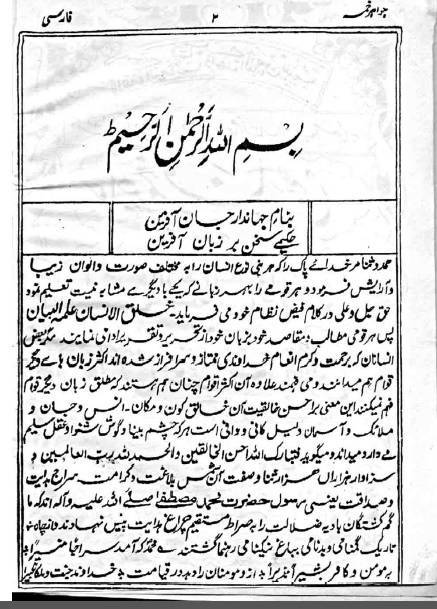 جواہر خمسہ ۲ فارسی
بسم الله الرحمن الرحيم
بنام جہاندار جان آفرین
حکیمے سخن بر زبان آفرین
حمد و ثنا مر خدائے پاک را کہ ہر بنی نوع انسان را بہ مختلف صورت و الوان زیبا
و آرایش فرمود و ہر قومے را بہر زبانے کہ یکے بادیگرے مشابہ نیست تعلیم نمود
حق جل و علی در کلام فیض نظام خود می فرماید۔ خلق الانسان علمه البيان
پس ہر قومی مطالب و مقاصد خود بزبان خود از تحریر و تقریر ادا می نمایند مگر بعض
انسانان کہ برحمت و کرم انعام خداوندی ممتاز و سرافراز شده اند اکثر زبان ہاے دیگر
قوام ہم میدانند و می فہمند علاوه آن اکثر اقوام چنان ہم ہستند کہ مطلق زبان دیگر قوام
فہم نمیکنند این معنی بر احسن خالقیت آن خالق کون و مکان۔ انس و جان و
ملائک و آسمان دلیل کافی و وافی است ہر کہ چشم بینا و گوش شنوا و عقل سلیم
می دارد میداند و میگوید فتبارك الله احسن الخالقين والحمد لله رب العالمين و
سزاوار ہزاران ہزار ثنا و صفت آن شمس بلاغت و کرامت۔ سراج ہدایت
و صداقت یعنی رسول حضرت محمد مصطفے صلے الله عليه وآله اند کہ ما
گم گشتگان بادیہ ضلالت را بصراط مستقیم چراغ ہدایت پیش نہادند و از چاه
تاریک گمنامی و بدنامی بباغ نیکنامی رہنما گشتند کہ آمد سراجا منیرا
بر مومن و کافر بشیرا نذیرا و مومنان را در قیامت بخداوند جنت و ملکا کبیرا